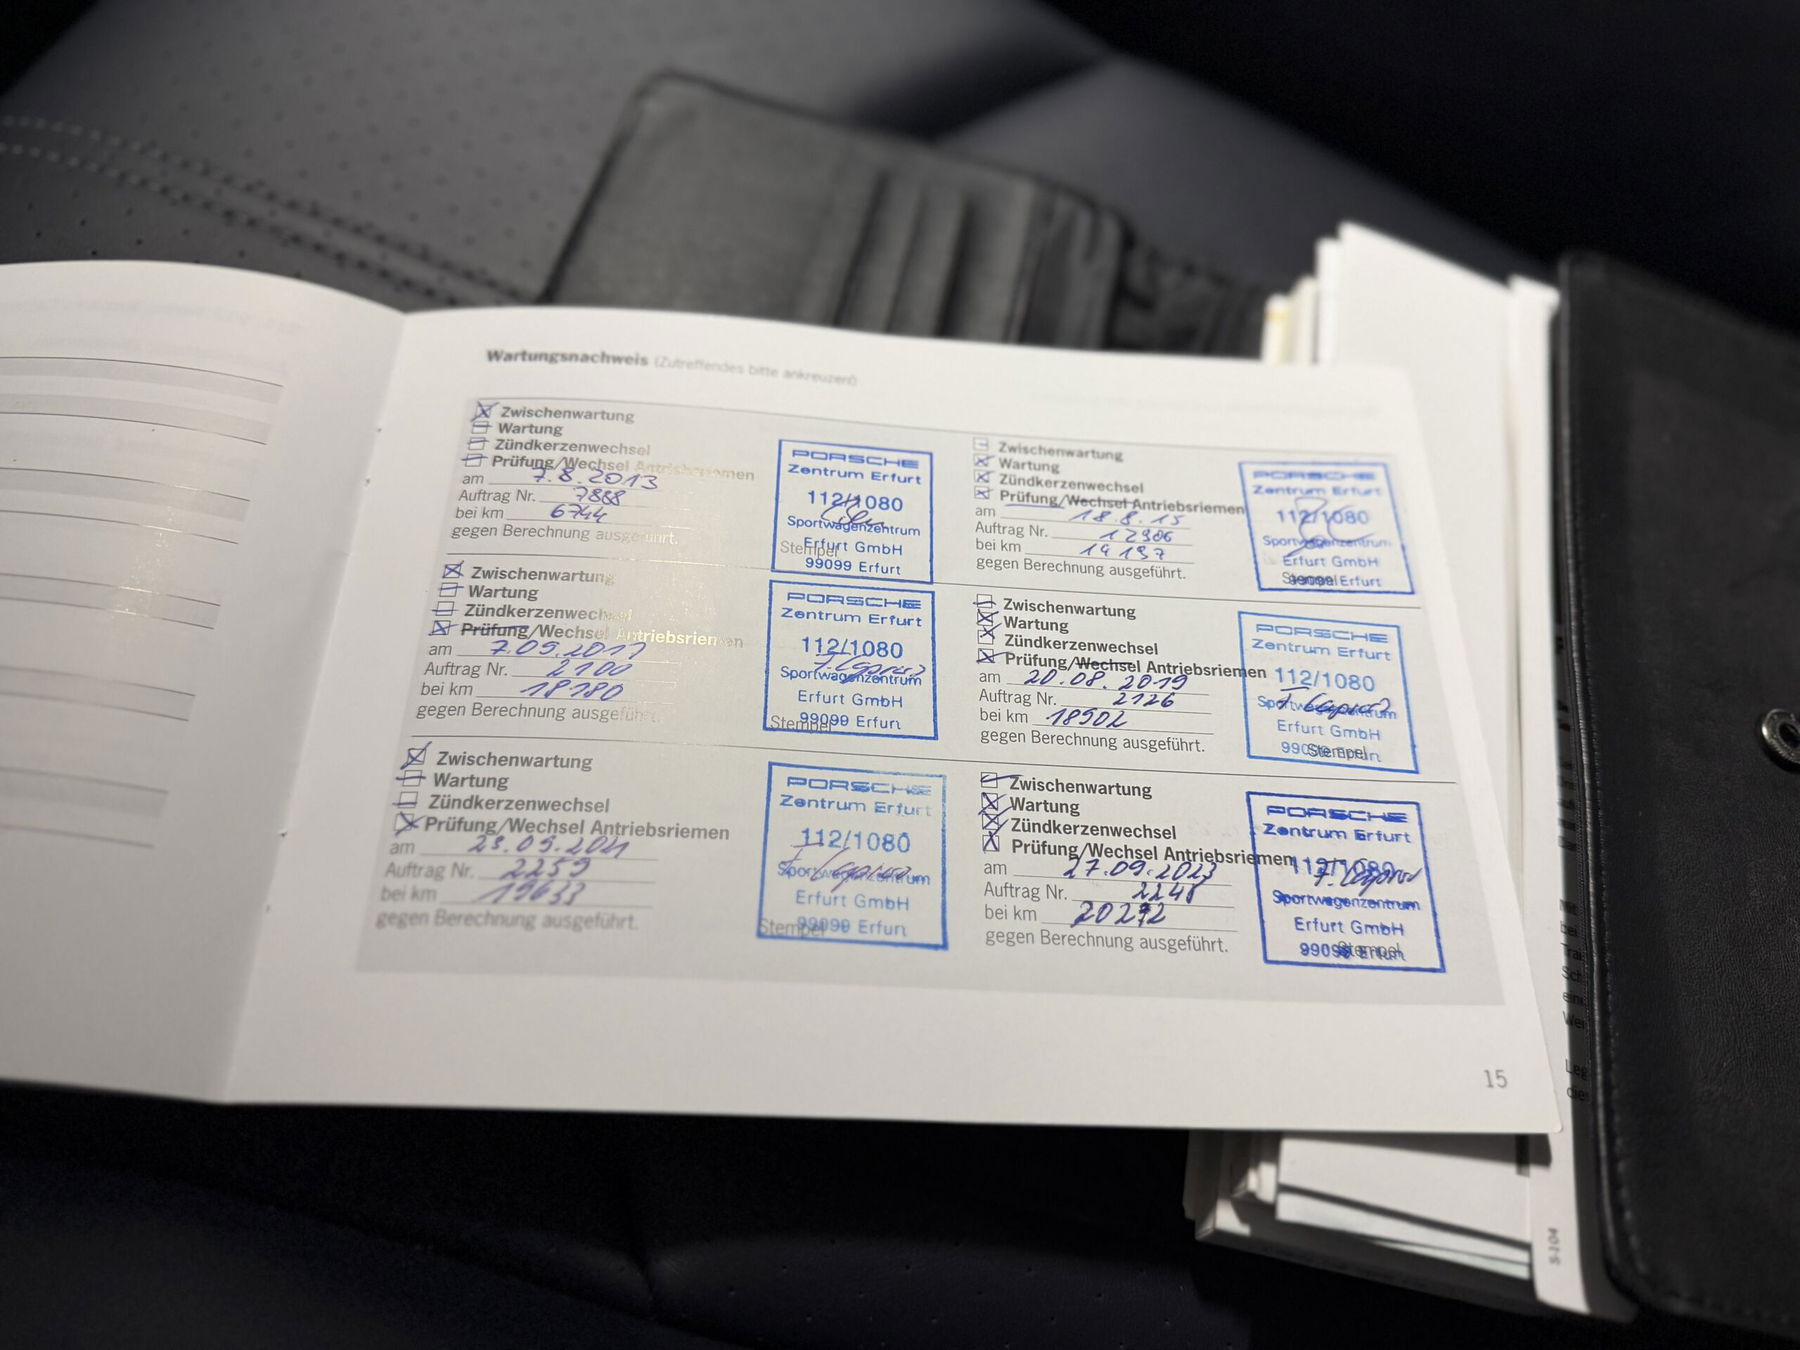 Wartungsnachweis (Zutreffendes bitte ankreuzen!)
Zwischenwartung
Wartung
Zündkerzenwechsel
Prüfung/Wechsel Antriebsriemen
am 7.8.2013
Auftrag Nr. 7888
bei km 6744
gegen Berechnung ausgeführt.
PORSCHE
Zentrum Erfurt
112/1080
Sportwagenzentrum
Erfurt GmbH
Stempel
99099 Erfurt
Zwischenwartung
Wartung
Zündkerzenwechsel
Prüfung/Wechsel Antriebsriemen
am 18.8.15
Auftrag Nr. 12906
bei km 14197
gegen Berechnung ausgeführt.
PORSCHE
Zentrum Erfurt
112/1080
Sportwagenzentrum
Erfurt GmbH
Stempel
99099 Erfurt
Zwischenwartung
Wartung
Zündkerzenwechsel
Prüfung/Wechsel Antriebsriemen
am 7.09.2017
Auftrag Nr. 2100
bei km 18180
gegen Berechnung ausgeführt.
PORSCHE
Zentrum Erfurt
112/1080
Sportwagenzentrum
Erfurt GmbH
99099 Erfurt
Stempel
Zwischenwartung
Wartung
Zündkerzenwechsel
Prüfung/Wechsel Antriebsriemen
am 20.08.2019
Auftrag Nr. 2126
bei km 18902
gegen Berechnung ausgeführt.
PORSCHE
Zentrum Erfurt
112/1080
Sportwagenzentrum
Erfurt GmbH
99099 Erfurt
Stempel
Zwischenwartung
Wartung
Zündkerzenwechsel
Prüfung/Wechsel Antriebsriemen
am 23.09.2021
Auftrag Nr. 2259
bei km 19633
gegen Berechnung ausgeführt.
PORSCHE
Zentrum Erfurt
112/1080
Sportwagenzentrum
Erfurt GmbH
99099 Erfurt
Stempel
Zwischenwartung
Wartung
Zündkerzenwechsel
Prüfung/Wechsel Antriebsriemen
am 27.09.2023
Auftrag Nr. 2248
bei km 20292
gegen Berechnung ausgeführt.
PORSCHE
Zentrum Erfurt
112/1080
Sportwagenzentrum
Erfurt GmbH
99099 Erfurt
Stempel
15
S-104